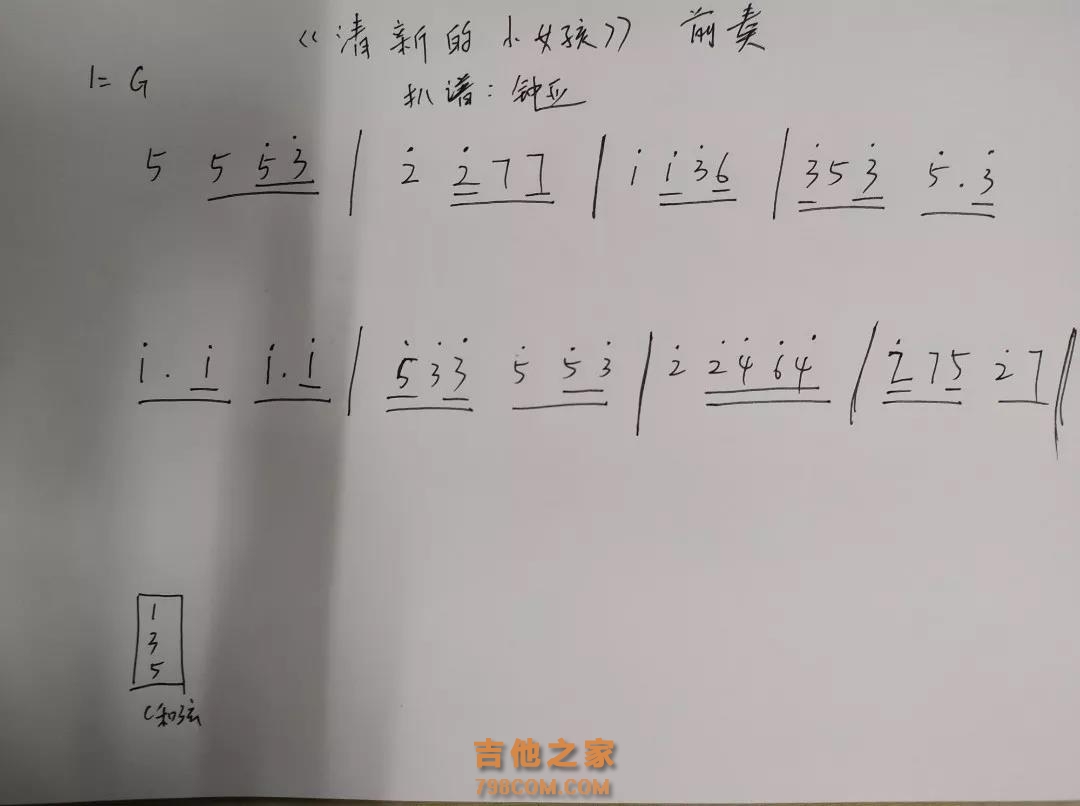 《清新的小女孩》 前奏
1= G
扒谱：钟
5 5 5̇ 3̇ | 2̇ 2̇ 7 7 | 1̇ 1̇ 3̇ 6 | 3̇ 5 3̇ 5̇ . 3̇
1̇ . 1̇ 1̇ . 1̇ | 5̇ 3̇ 3̇ 5̇ 5̇ 3̇ | 2̇ 2̇ 4̇ 6̇ 4̇ | 2̇ 7 5 2̇ 7 ||
1
3
5
C和弦
吉他之家
798COM.COM